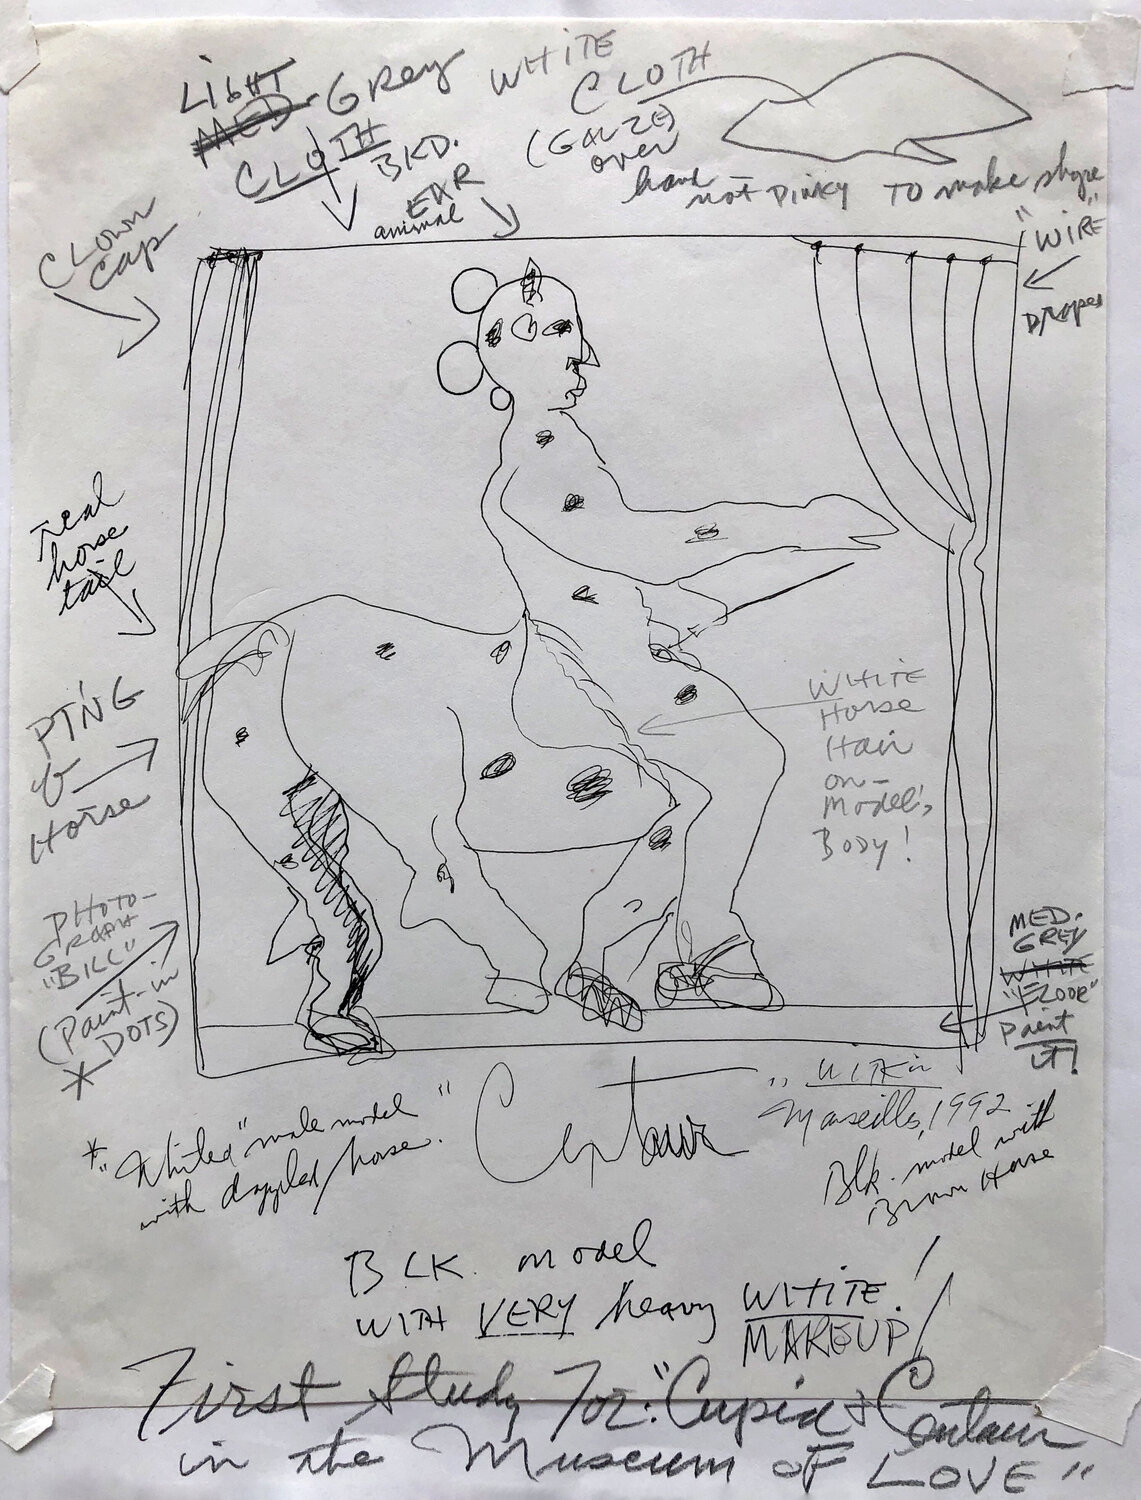 LIGHT
MED-GREY
CLOTH
BKD.
WHITE
CLOTH
(GAUZE)
over
hand
not PINKY TO make shape
animal
EAR
CLOWN
CAP
"WIRE"
Drapes
real
horse
tail
PTNG
Horse
WHITE
Horse
Hair
on-
Model's
Body!
PHOTO-
GRAPH
"BILL"
(Paint-in
DOTS)
*
MED.
GREY
WHITE
"FLOOR"
Paint
it!
* "Whited" male model"
with dappled horse.
Centaur
WITKin
Marseille, 1992
Blk. model with
Brown Horse
BLK. model
WITH VERY heavy WHITE!
MAKEUP!
First Study For: "Cupid + Centaur
in the Museum OF LOVE"